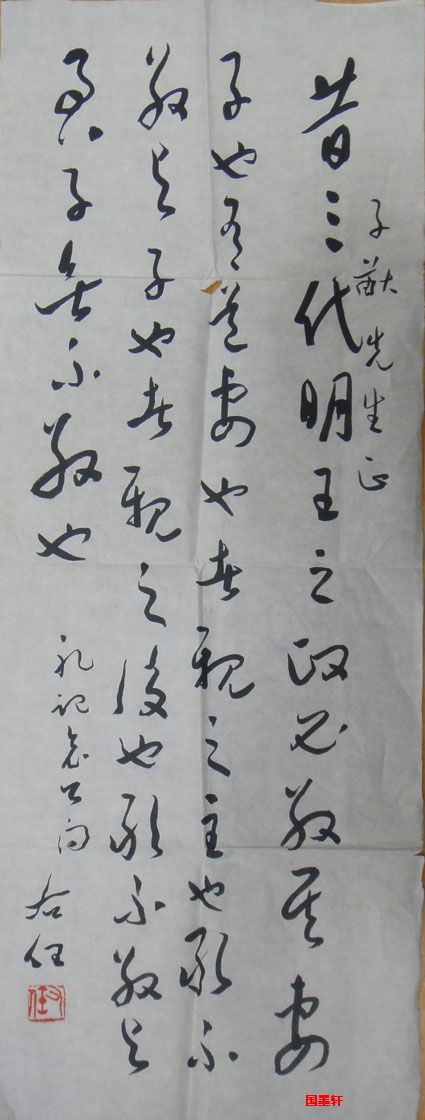 子猷先生正
昔三代明王之政必敬其妻
子也有道妻也者親之主也敢不
敬与子也者親之後也敢不敬与
君子無不敬也
礼記哀公問
右任
国墨轩